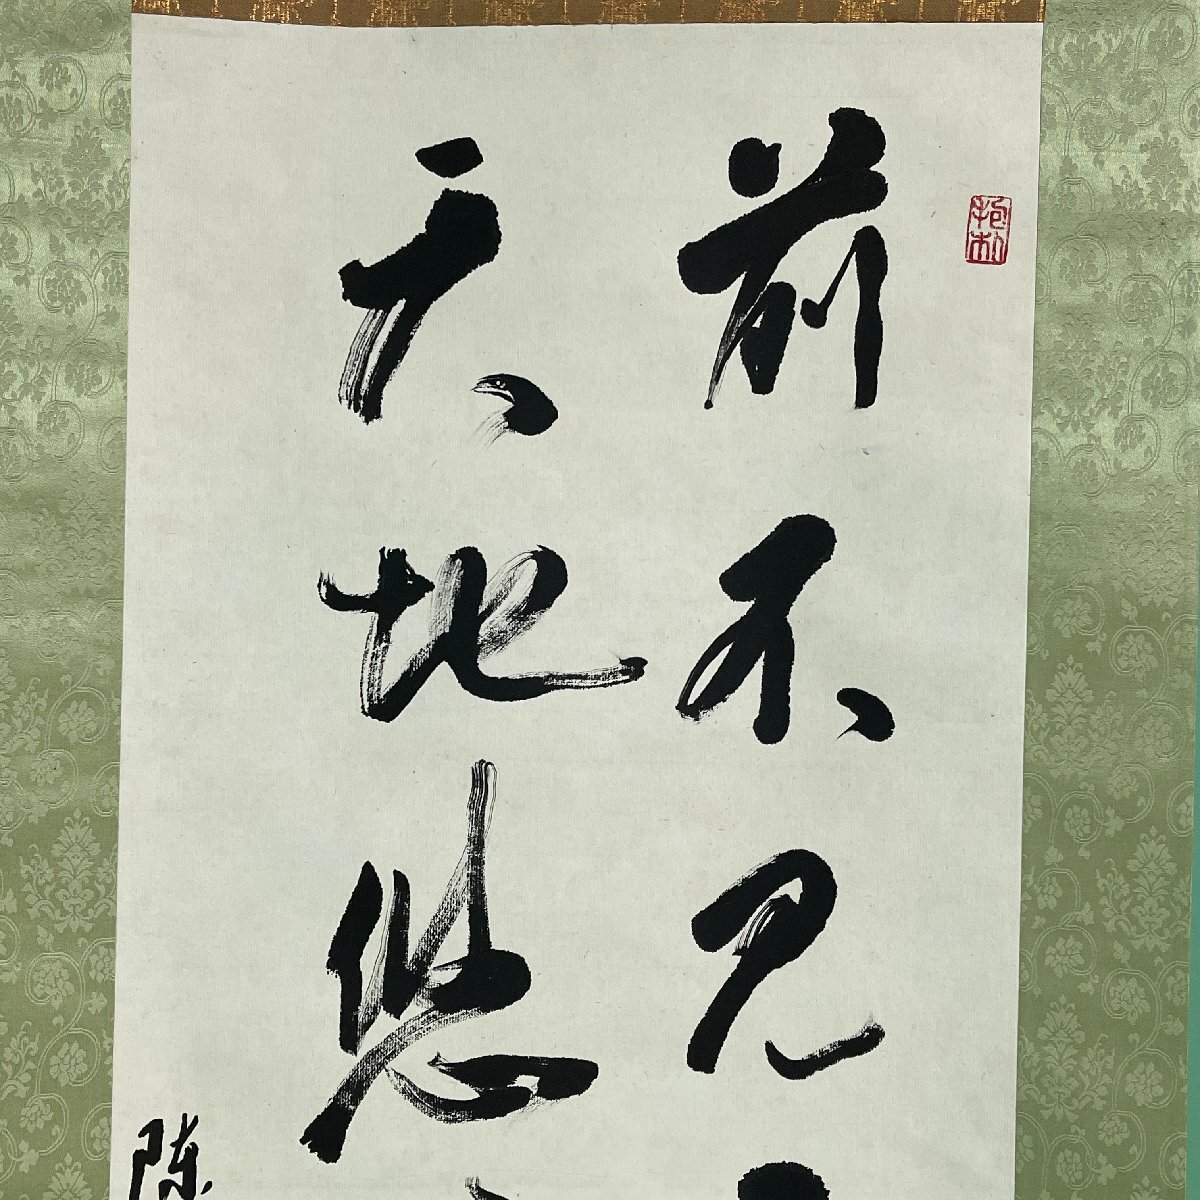 前不見
天地悠
陈
抱朴